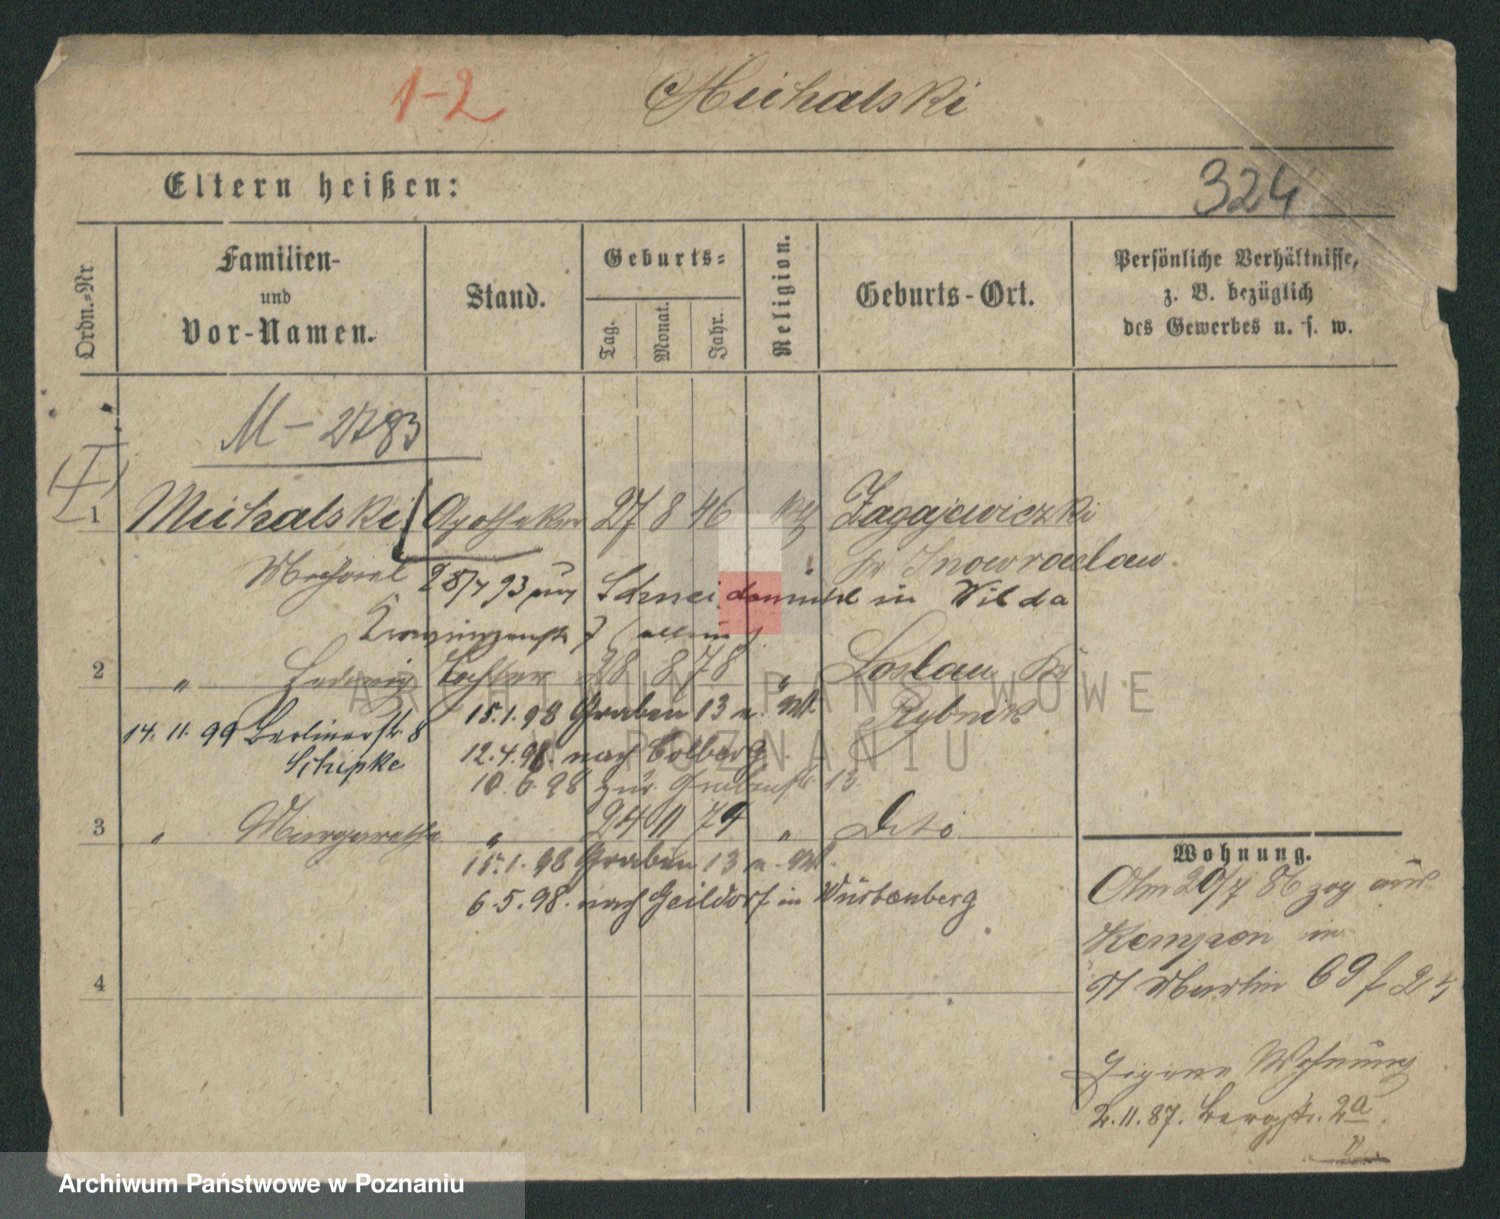 1-2 Michalski
Eltern heißen:
324
Ordn.-Nr
Familien-
und
Vor-Namen.
Stand.
Geburts-
Tag.
Monat.
Jahr.
Religion.
Geburts-Ort.
Persönliche Verhältnisse,
z. B. bezüglich
des Gewerbes u. s. w.
M - 2783
1 Michalski Apotheker 27 8 46 Zagajewiczki
Inowrazlaw.
28/4 93 aus Schneidemühl in Wilda
2 " Hedwig Tochter 28 8 78 " Loslau Kr
15.1.98 Graben 13 Rybnik
14. 11. 99 Berlinerstr. 8
Schipke
12.4.98. nach Colberg
10.6.98 zur Grabenstr 13
3 " Margarethe " 24 11 79 " Dito
15.1.98 Graben 13
6.5.98. nach Gaildorf in Würtemberg
4
Wohnung.
Am 20/7 86 zog aus
Kempen in
St Martin 69
Eigene Wohnung
2.11.87. Bergstr. 2a
ARCHIWUM PAŃSTWOWE
W POZNANIU
Archiwum Państwowe w Poznaniu